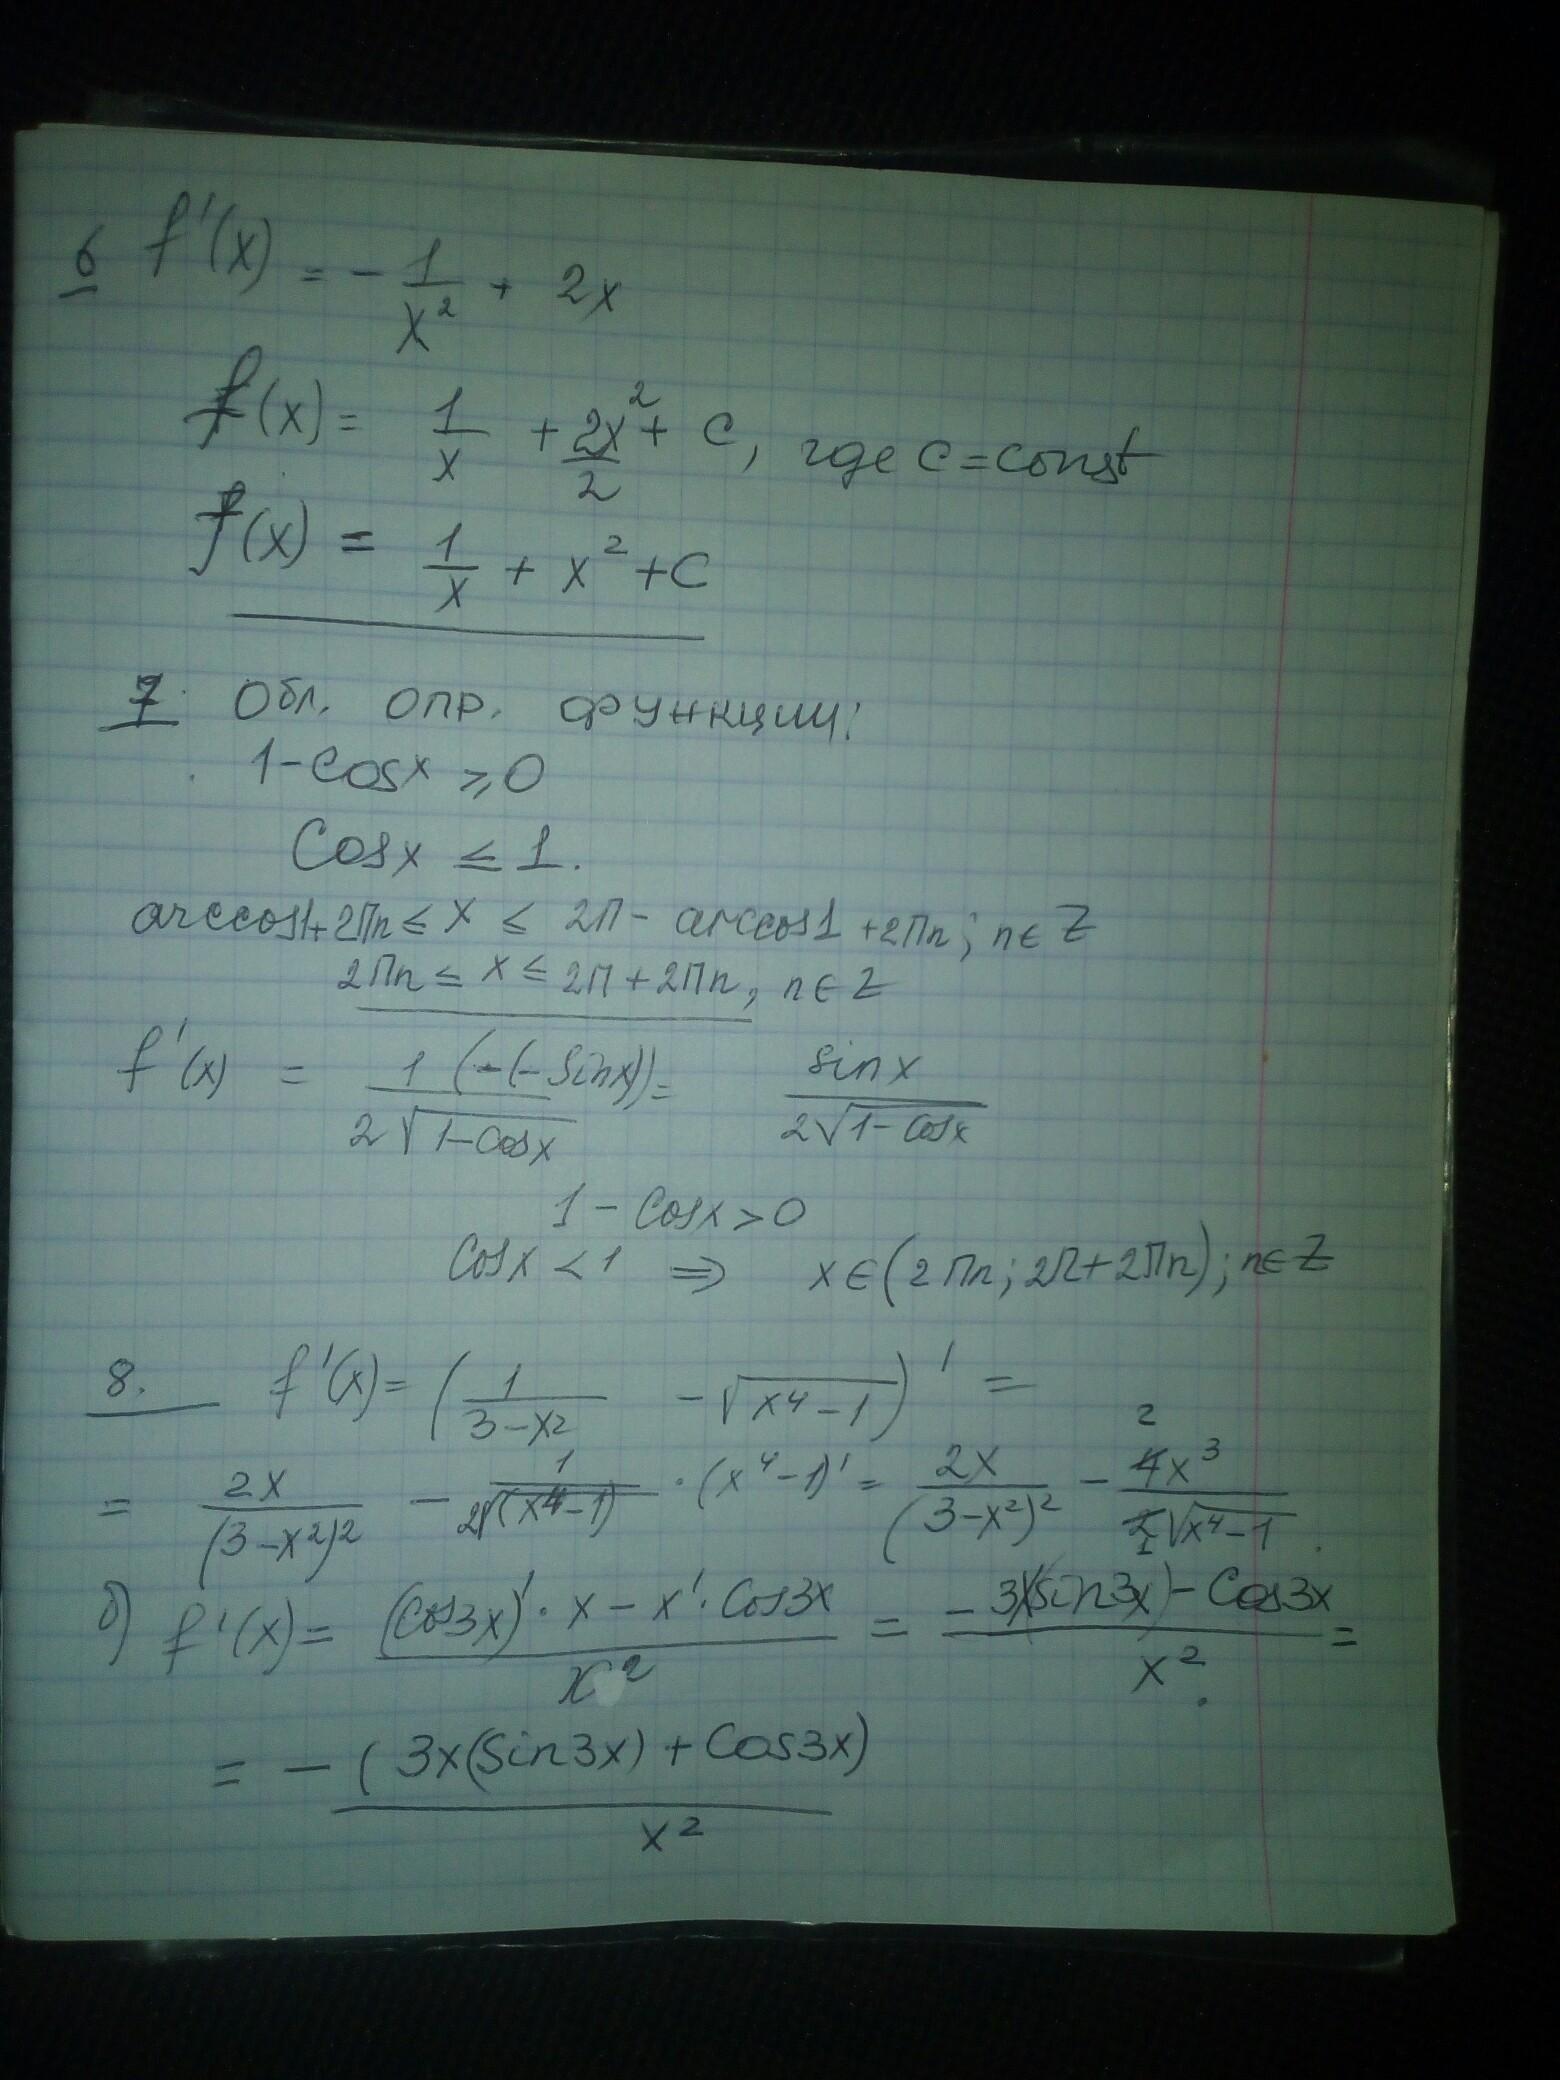 6 f'(x) = - 1/x² + 2x
f(x) = 1/x + 2x²/2 + C, где C = const
f(x) = 1/x + x² + C
7. Обл. опр. функции:
1 - Cosx ⩾ 0
Cosx ≤ 1.
arccos1 + 2Пn ≤ x ≤ 2П - arccos1 + 2Пn; n ∈ Z
2Пn ≤ x ≤ 2П + 2Пn, n ∈ Z
f'(x) = 1/(2√(1-Cosx)) (-(-Sinx)) = sinx/(2√(1-Cosx))
1 - Cosx > 0
Cosx < 1 ⇒ x ∈ (2Пn; 2П + 2Пn); n ∈ Z
8. f'(x) = (1/(3-x²) - √(x⁴-1))' =
= 2x/(3-x²)² - 1/(2√(x⁴-1)) · (x⁴-1)' = 2x/(3-x²)² - 4x³/(2√(x⁴-1)). 2 1
б) f'(x) = ((Cos3x)' · x - x' · Cos3x)/x² = (-3x(sin3x) - Cos3x)/x² =
= -(3x(Sin3x) + Cos3x)/x²